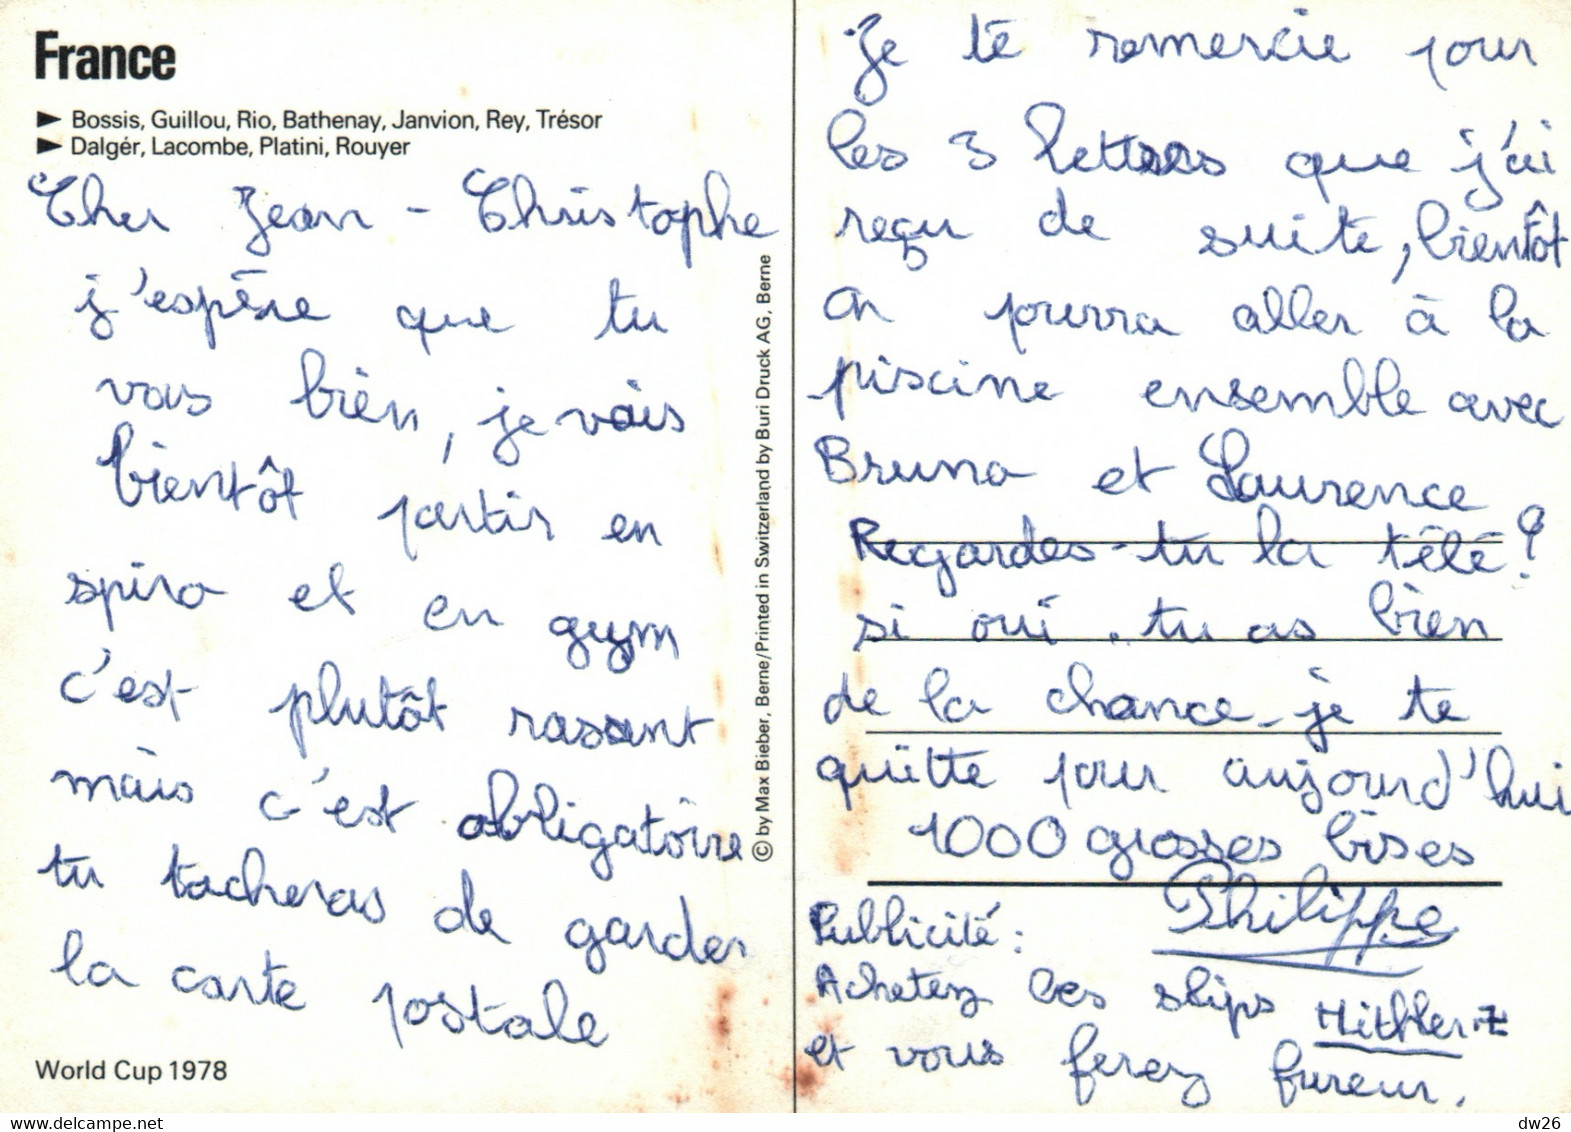 France
► Bossis, Guillou, Rio, Bathenay, Janvion, Rey, Trésor
► Dalgér, Lacombe, Platini, Rouyer
Cher Jean-Christophe
j'espère que tu
vas bien, je vais
bientôt partir en
spiro et en gym
c'est plutôt rasant
mais c'est obligatoire
tu tacheras de garder
la carte postale
World Cup 1978
© by Max Bieber, Berne/Printed in Switzerland by Buri Druck AG, Berne
Je te remercie pour
les 3 lettres que j'ai
reçu de suite, bientôt
on pourra aller à la
piscine ensemble avec
Bruno et Laurence
Regardes-tu la télé?
si oui, tu as bien
de la chance-je te
quitte pour aujourd'hui
1000 grosses bises
Philippe
Publicité:
Achetez les slips Hithler
et vous ferez fureur.
delcampe.net
dw26